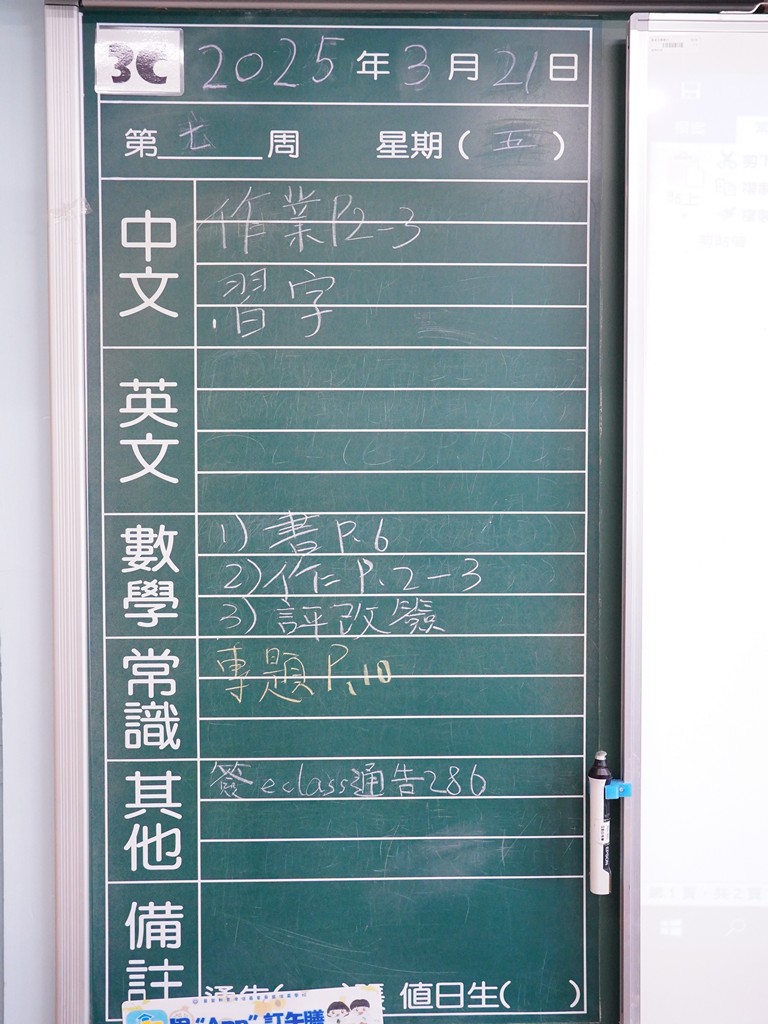 3C 2025年3月21日
第 七 周 星期(五)
中文
作業P2-3
習字
英文
數學
1) 書P.6
2) 作二 P.2-3
3) 評改簽
常識
專題P.10
其他
簽eclass通告286
備註
值日生( )
"App"訂午膳
EPSON